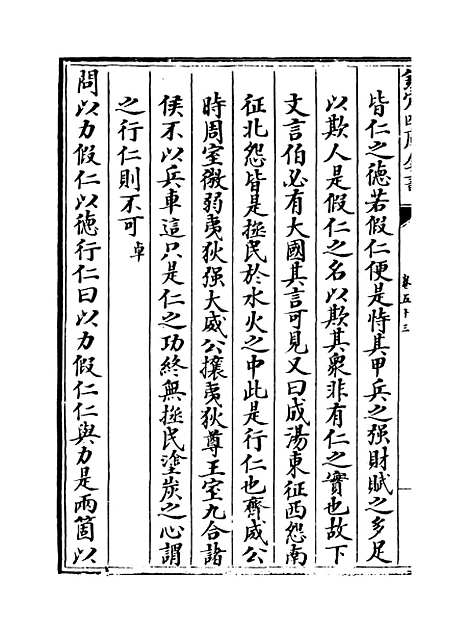 欽定四庫全書
卷五十三
皆仁之徳若假仁便是恃其甲兵之强財賦之多足
以欺人是假仁之名以欺其衆非有仁之實也故下
文言伯必有大國其言可見又曰成湯東征西怨南
征北怨皆是拯民於水火之中此是行仁也齊威公
時周室微弱夷狄强大威公攘夷狄尊王室九合諸
侯不以兵車這只是仁之功終無拯民塗炭之心謂
之行仁則不可卓
問以力假仁以徳行仁曰以力假仁仁與力是兩箇以